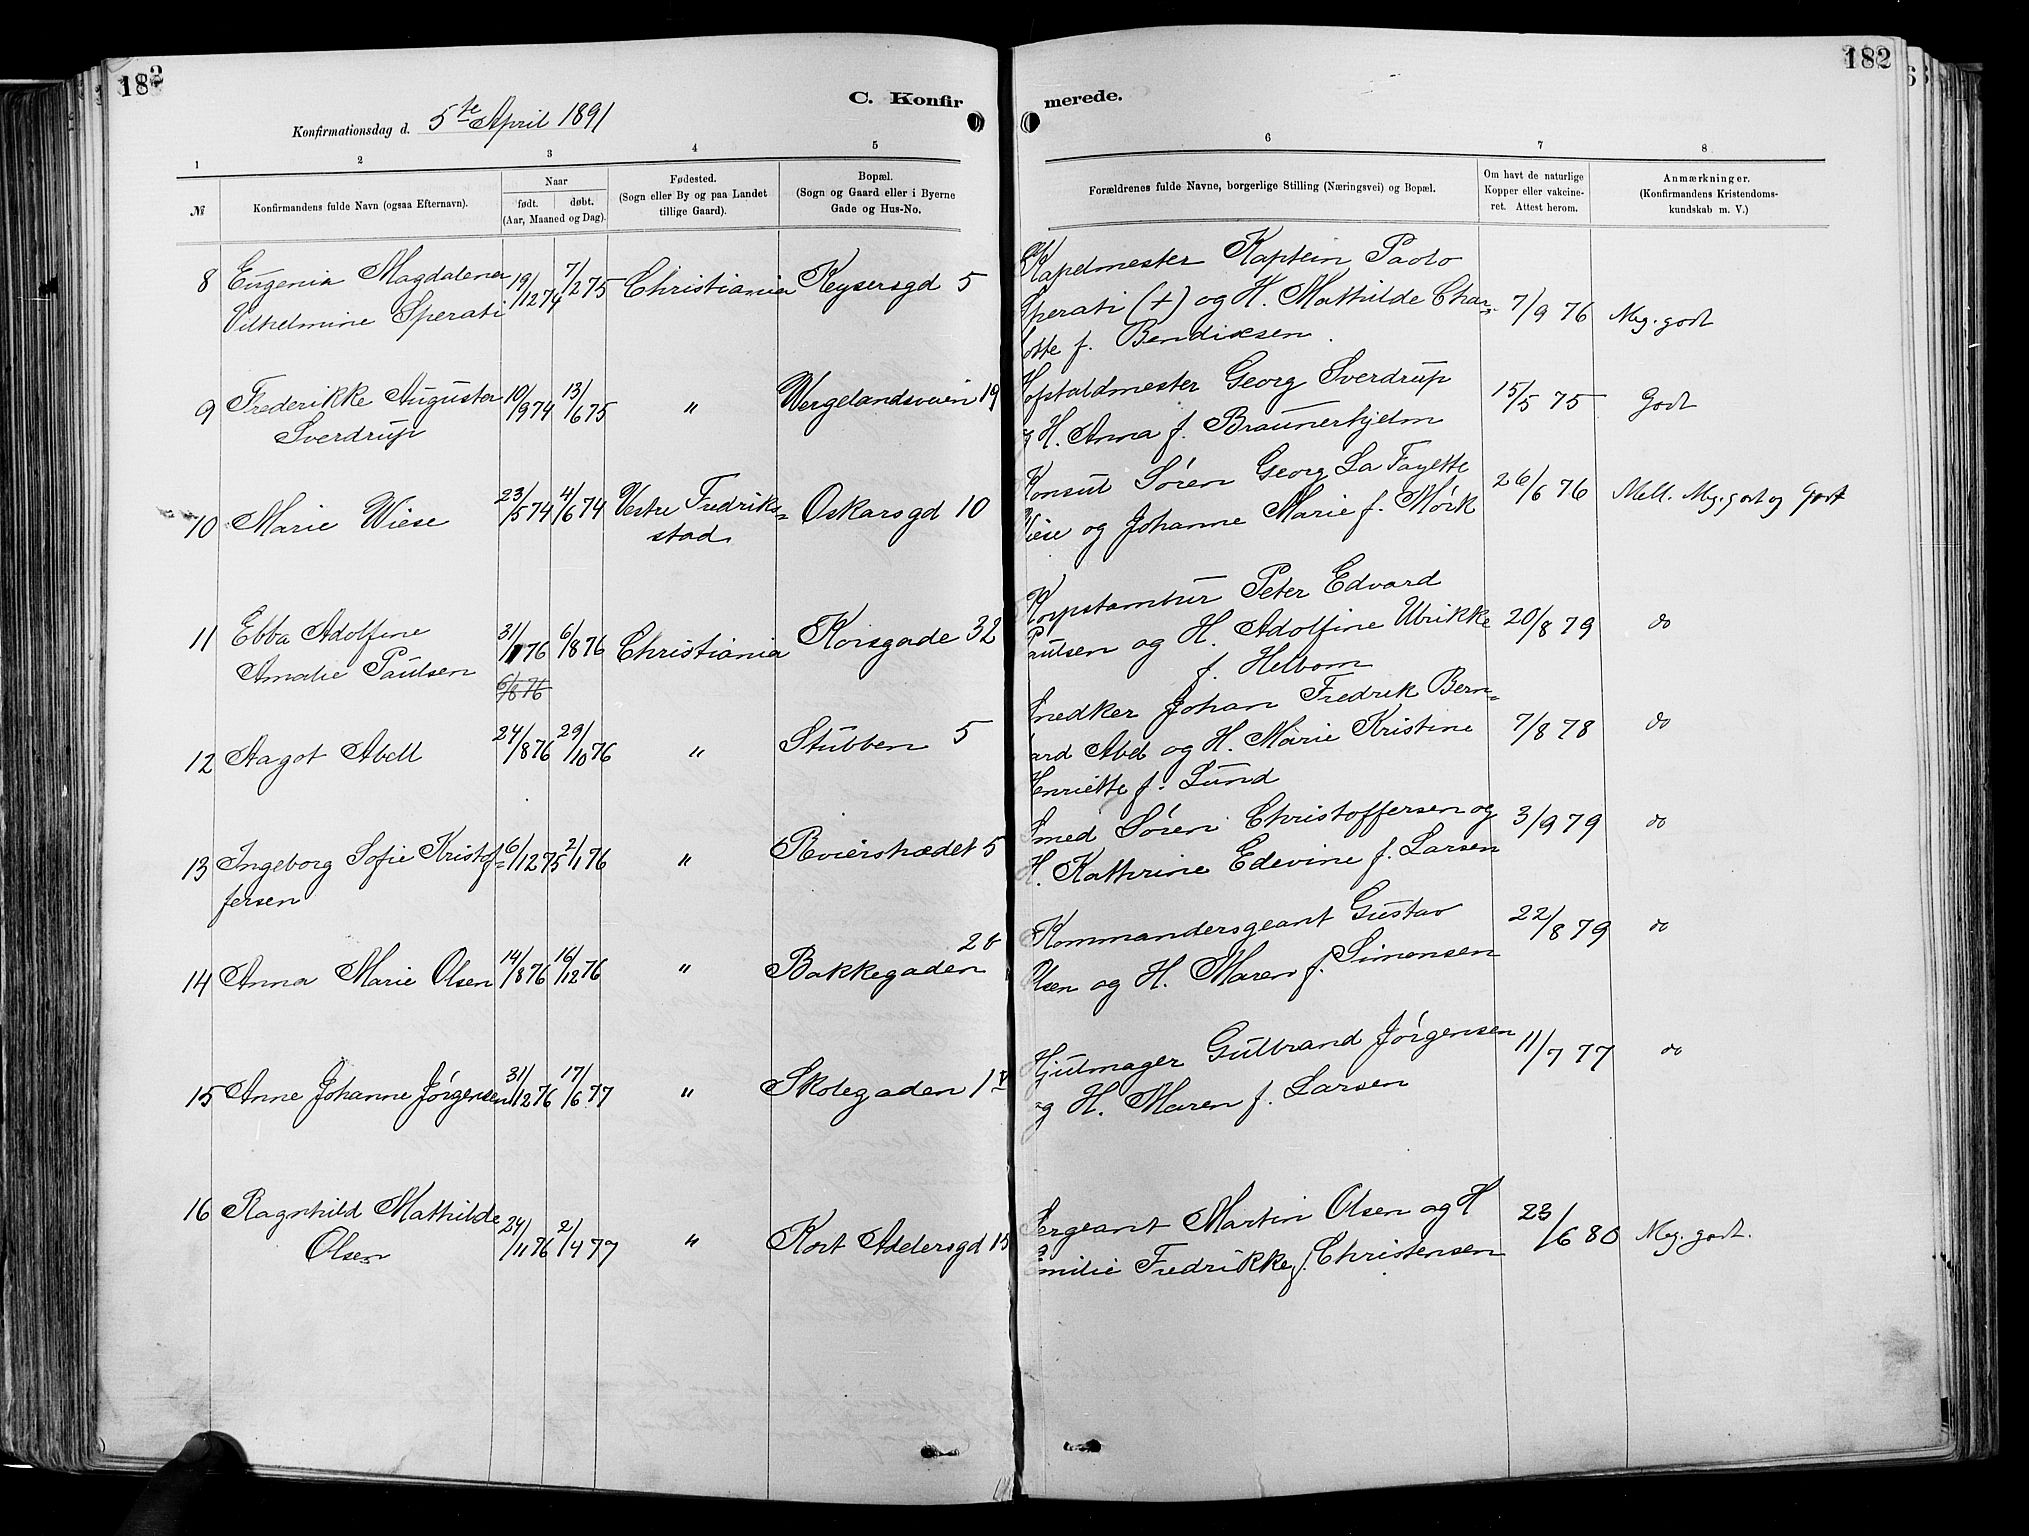 182
182
C. Konfir
merede.
Konfirmationsdag d. 5te April 1891
1
2
3
4
5
6
7
8
№
Konfirmandens fulde Navn (ogsaa Efternavn).
Naar
født.
døbt.
(Aar, Maaned og Dag).
Fødested.
(Sogn eller By og paa Landet
tillige Gaard).
Bopæl.
(Sogn og Gaard eller i Byerne
Gade og Hus-No.
Forældrenes fulde Navne, borgerlige Stilling (Næringsvei) og Bopæl.
Om havt de naturlige
Kopper eller vakcine-
ret. Attest herom.
Anmærkninger.
(Konfirmandens Kristendoms-
kundskab m. V.)
8 Eugenia Magdalena 19/12 74 7/2 75 Christiania Keysersgd 5
Vilhelmine Sperati
Kapelmester Kaptein Paolo
Sperati (+) og H. Mathilde Char- 7/9 76 Meg. godt
lotte f. Bendixsen.
9 Frederikke Augusta 10/9 74 13/6 75 " Wergelandsveien 19
Sverdrup
Hofstaldmester Georg Sverdrup 15/5 75 Godt
og H. Anna f. Braunerhjelm
10 Marie Wiese 23/5 74 4/6 74 Vestre Fredriks= Oskarsgd 10
stad
Konsul Sören Georg La Fayette 26/6 76 Mell. Meg. godt og Godt
Wiese og Johanne Marie f. Mørk
11 Ebba Adolfine 31/1 76 6/8 76 Christiania Korsgade 32
Amalie Paulsen 6/8 76
Korpstambur Peter Edvard
Paulsen og H. Adolfine Ulrikke 20/8 79 do
f. Helbom
12 Aagot Abell 24/8 76 29/10 76 " Stubben 5
Snedker Johan Fredrik Bern=
hard Abel og H. Marie Kristine 7/8 78 do
Henriette f. Lund
13 Ingeborg Sofie Kristof= 6/12 75 2/1 76 " Revierstrædet 5
fersen
Smed Sören Christoffersen og 3/9 79 do
H. Kathrine Edevine f. Larsen
14 Anna Marie Olsen 14/8 76 16/12 76 " Bakkegaden
Kommandersgeant Gustav 22/8 79 do
Olsen og H. Maren f. Simonsen
15 Anne Johanne Jørgensen 31/12 76 17/6 77 " Skolegaden
Hjulmager Gulbrand Jørgensen 11/7 77 do
og H. Maren f. Larsen
16 Ragnhild Mathilde 24/11 76 2/4 77 " Kort Adelersgd 15
Olsen
Sergeant Martin Olsen og H 23/6 80 Meg. godt.
Emilie Fredrikke f. Christensen